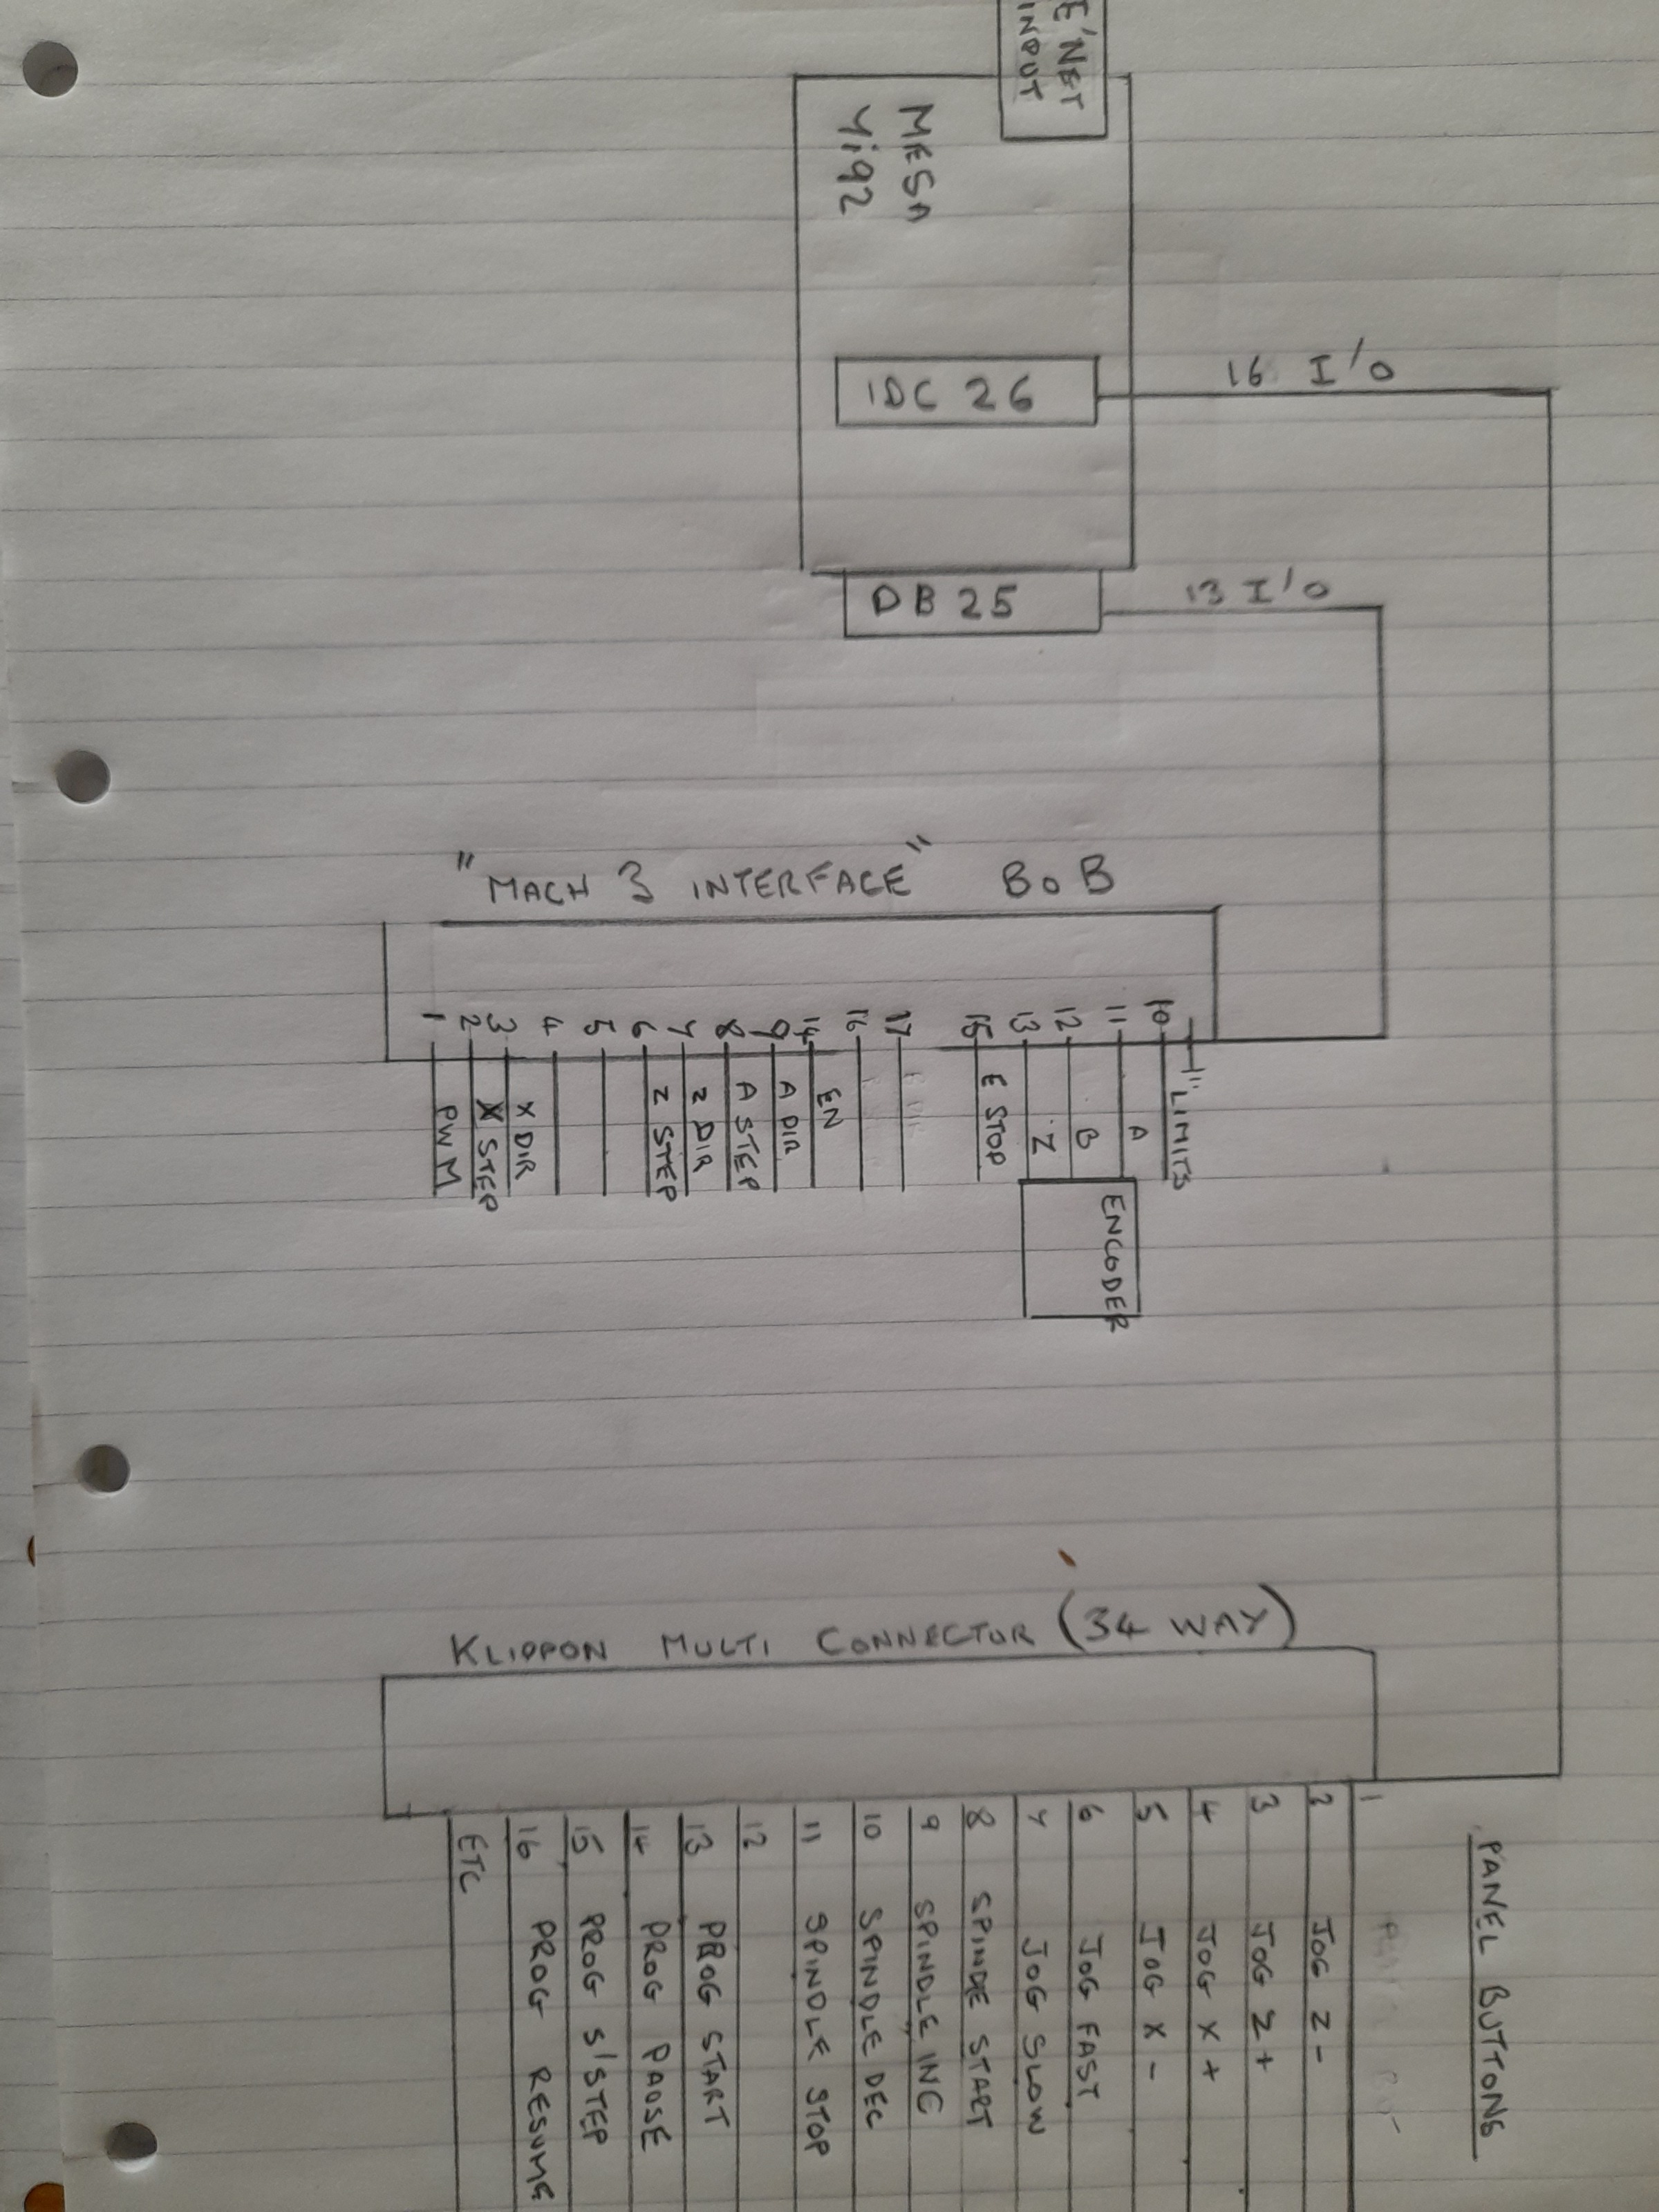 E'NET
INPUT
MESA
7i92
IDC 26
16 I/O
DB 25
13 I/O
"MACH 3 INTERFACE" BOB
1 PWM
2 X STEP
3 X DIR
4
5
6 Z STEP
7 Z DIR
8 A STEP
9 A DIR
14 EN
16
17
15 E STOP
13 Z
12 B
11 A
10 "LIMITS
ENCODER
KLIPPON MULTI CONNECTOR (34 WAY)
PANEL BUTTONS
1
2 JOG Z -
3 JOG Z +
4 JOG X +
5 JOG X -
6 JOG FAST
7 JOG SLOW
8 SPINDE START
9 SPINDLE INC
10 SPINDLE DEC
11 SPINDLE STOP
12
13 PROG START
14 PROG PAUSE
15 PROG S/STEP
16 PROG RESUME
ETC